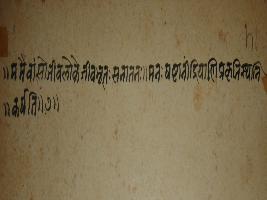 ॥ममैवांसोजीवलोकेजीवभूतःसनातनः॥मनःषष्टानींद्रियाणिप्रकृतिस्थानि
॥कर्षति॥७॥